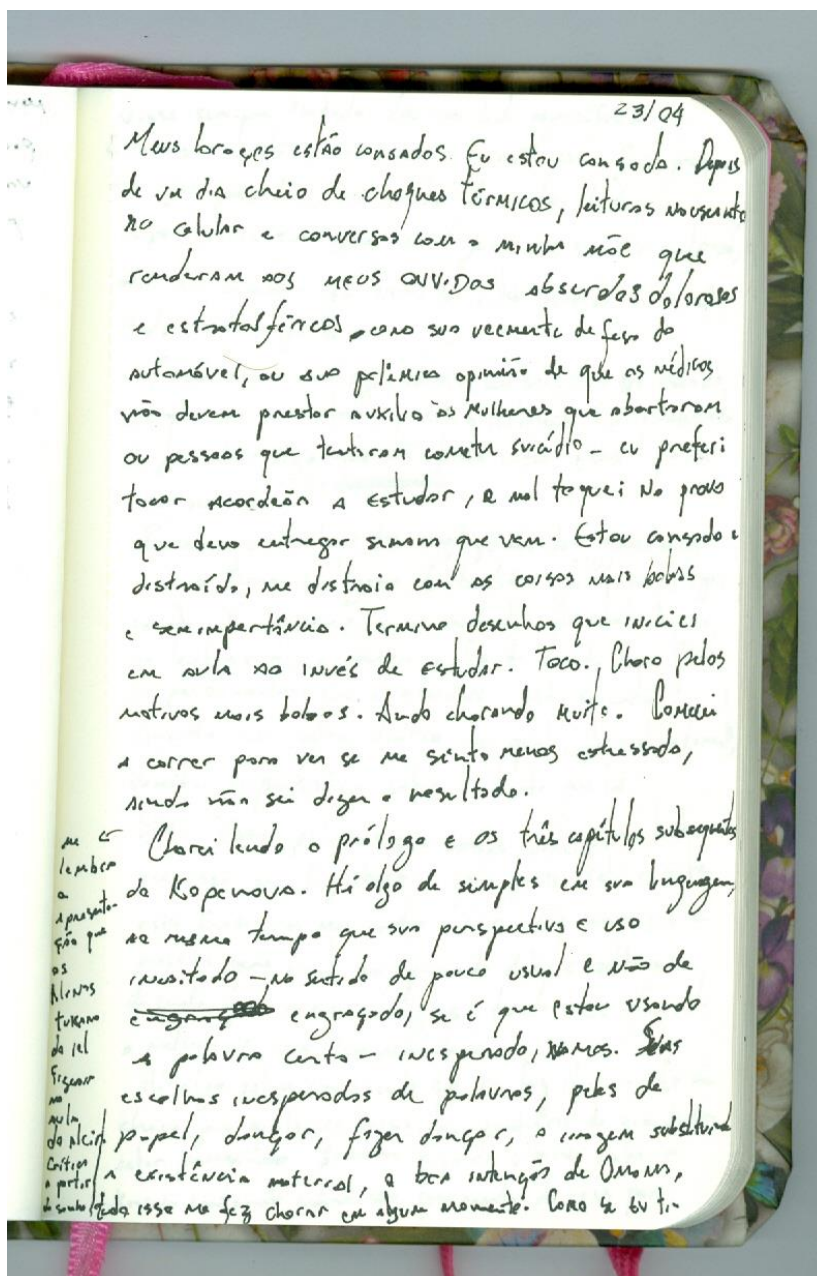 23/04
Meus braços estão cansados. Eu estou cansada. Depois
de um dia cheio de choques térmicos, leituras
no celular e conversas com a minha mãe que
renderam aos meus ouvidos absurdos dolorosos
e estratosféricos, como sua veemente defesa do
automóvel, ou sua polêmica opinião de que os médicos
não devem prestar auxílio às mulheres que abortaram
ou pessoas que tentaram cometer suicídio - eu preferi
tocar acordeón a estudar, e mal toquei na prova
que devo entregar semana que vem. Estou cansado e
distraído, me distraio com as coisas mais bobas
e sem importância. Termino desenhos que iniciei
em aula ao invés de estudar. Toco. Choro pelos
motivos mais bobos. Ando chorando muito. Comecei
a correr para ver se me sinto menos estressado,
ainda não sei dizer o resultado.
Chorei lendo o prólogo e os três capítulos subsequentes
do Kopenawa. Há algo de simples em sua linguagem,
ao mesmo tempo que sua perspectiva e uso
inusitado - no sentido de pouco usual e não de
engraçado, se é que estou usando
a palavra certa - inesperado, vamos. Suas
escolhas inesperadas de palavras, peles de
papel, dançar, fazer dançar, a imagem substituindo
a existência material, a boa intenção de Omama,
tudo isso me fez chorar em algum momento. Como se eu ti-
me
lembra
a
apresenta-
ção que
os
alunos
tukano
do
fizeram
na
aula
da
Crítica
a partir
do sonho